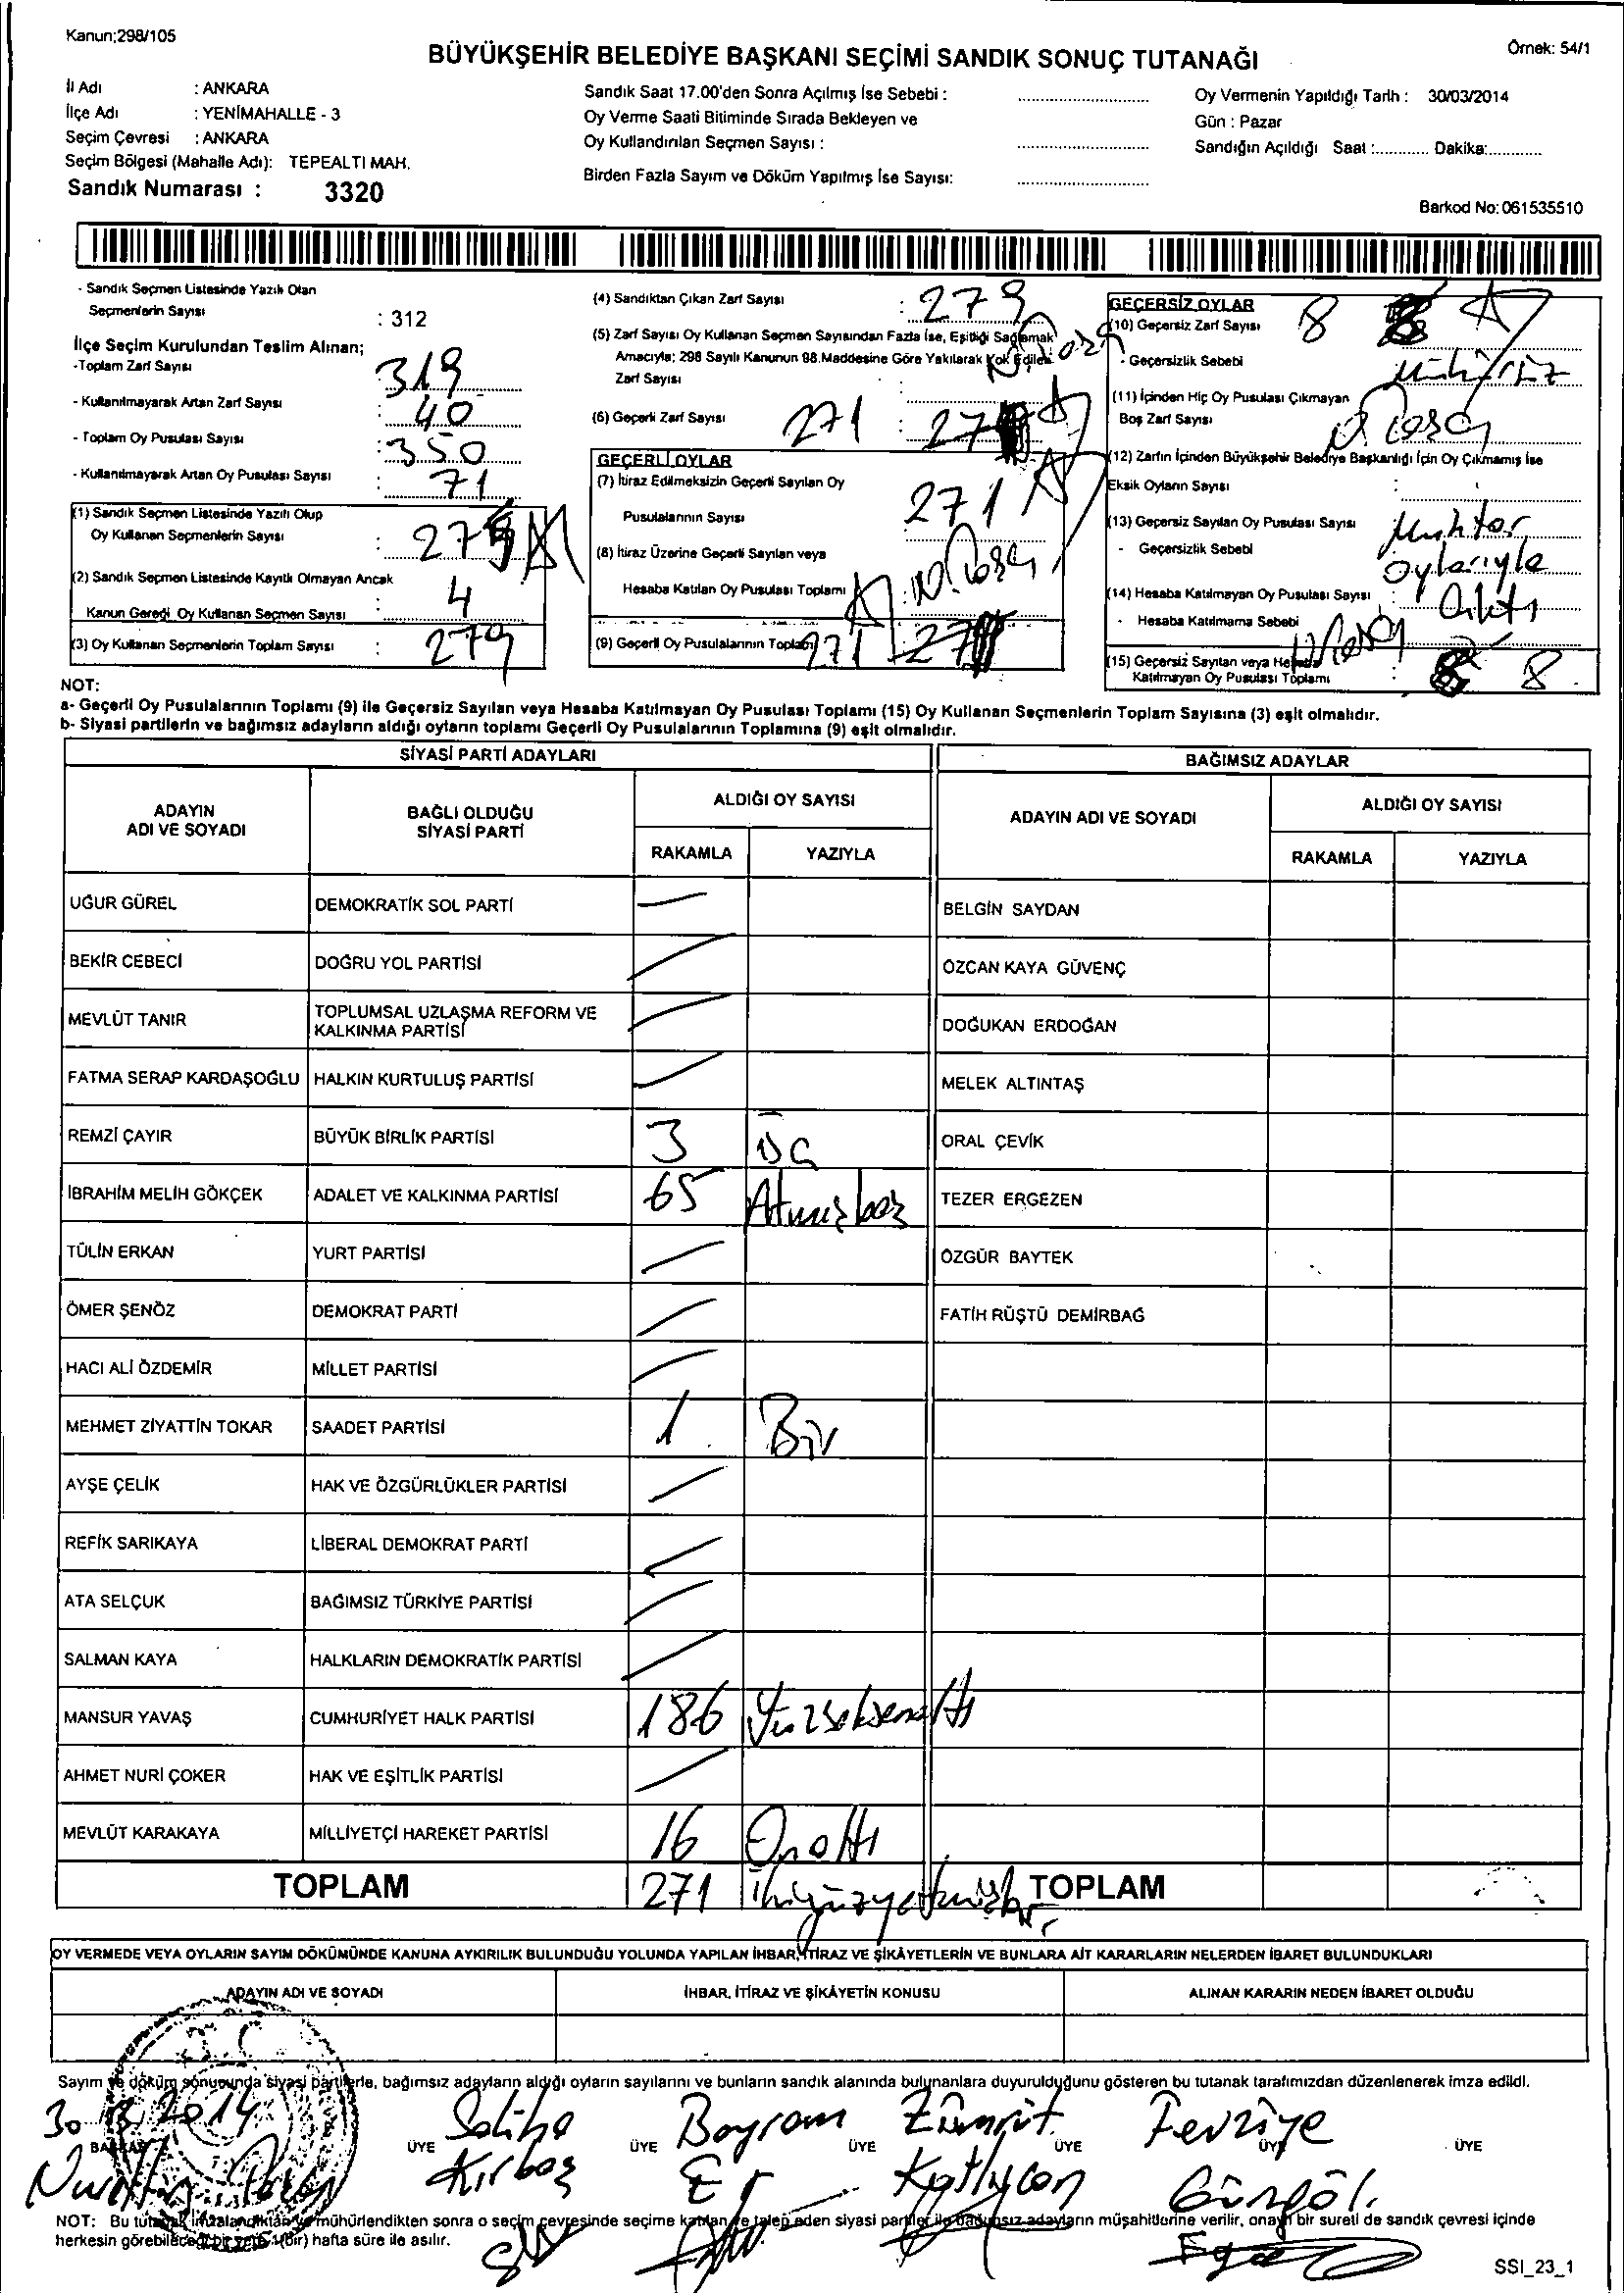 Kanun;298/105
Örnek: 54/1
BÜYÜKŞEHİR BELEDİYE BAŞKANI SEÇİMİ SANDIK SONUÇ TUTANAĞI
İl Adı : ANKARA
İlçe Adı : YENİMAHALLE - 3
Seçim Çevresi : ANKARA
Seçim Bölgesi (Mahalle Adı): TEPEALTI MAH.
Sandık Numarası : 3320
Sandık Saat 17.00'den Sonra Açılmış İse Sebebi :
Oy Verme Saati Bitiminde Sırada Bekleyen ve
Oy Kullandırılan Seçmen Sayısı :
Birden Fazla Sayım ve Döküm Yapılmış İse Sayısı:
Oy Vermenin Yapıldığı Tarih : 30/03/2014
Gün : Pazar
Sandığın Açıldığı Saat :............ Dakika:............
Barkod No: 061535510
- Sandık Seçmen Listesinde Yazılı Olan
Seçmenlerin Sayısı : 312
İlçe Seçim Kurulundan Teslim Alınan;
-Toplam Zarf Sayısı : 319
- Kullanılmayarak Artan Zarf Sayısı : 40
- Toplam Oy Pusulası Sayısı : 350
- Kullanılmayarak Artan Oy Pusulası Sayısı : 71
(1) Sandık Seçmen Listesinde Yazılı Olup
Oy Kullanan Seçmenlerin Sayısı : 275
(2) Sandık Seçmen Listesinde Kayıtlı Olmayan Ancak
Kanun Gereği Oy Kullanan Seçmen Sayısı : 4
(3) Oy Kullanan Seçmenlerin Toplam Sayısı : 279
(4) Sandıktan Çıkan Zarf Sayısı : 279
(5) Zarf Sayısı Oy Kullanan Seçmen Sayısından Fazla İse, Eşitliği Sağlamak
Amacıyla; 298 Sayılı Kanunun 98.Maddesine Göre Yakılarak Yok Edilen
Zarf Sayısı :
(6) Geçerli Zarf Sayısı 271 :
GEÇERLİ OYLAR
(7) İtiraz Edilmeksizin Geçerli Sayılan Oy
Pusulalarının Sayısı 271
(8) İtiraz Üzerine Geçerli Sayılan veya
Hesaba Katılan Oy Pusulası Toplamı :
(9) Geçerli Oy Pusulalarının Toplamı 271
GEÇERSİZ OYLAR
(10) Geçersiz Zarf Sayısı 8
- Geçersizlik Sebebi Mühürsüz
(11) İçinden Hiç Oy Pusulası Çıkmayan
Boş Zarf Sayısı
(12) Zarfın İçinden Büyükşehir Belediye Başkanlığı İçin Oy Çıkmamış İse
Eksik Oyların Sayısı :
(13) Geçersiz Sayılan Oy Pusulası Sayısı Muhtar
- Geçersizlik Sebebi oylarıyla
(14) Hesaba Katılmayan Oy Pusulası Sayısı : Çıktı
- Hesaba Katılmama Sebebi
(15) Geçersiz Sayılan veya Hesaba
Katılmayan Oy Pusulası Toplamı : 8
NOT:
a- Geçerli Oy Pusulalarının Toplamı (9) ile Geçersiz Sayılan veya Hesaba Katılmayan Oy Pusulası Toplamı (15) Oy Kullanan Seçmenlerin Toplam Sayısına (3) eşit olmalıdır.
b- Siyasi partilerin ve bağımsız adayların aldığı oyların toplamı Geçerli Oy Pusulalarının Toplamına (9) eşit olmalıdır.
SİYASİ PARTİ ADAYLARI
BAĞIMSIZ ADAYLAR
ADAYIN ADI VE SOYADI
BAĞLI OLDUĞU SİYASİ PARTİ
ALDIĞI OY SAYISI
RAKAMLA YAZIYLA
ADAYIN ADI VE SOYADI
ALDIĞI OY SAYISI
RAKAMLA YAZIYLA
UĞUR GÜREL DEMOKRATİK SOL PARTİ BELGİN SAYDAN
BEKİR CEBECİ DOĞRU YOL PARTİSİ ÖZCAN KAYA GÜVENÇ
MEVLÜT TANIR TOPLUMSAL UZLAŞMA REFORM VE KALKINMA PARTİSİ DOĞUKAN ERDOĞAN
FATMA SERAP KARDAŞOĞLU HALKIN KURTULUŞ PARTİSİ MELEK ALTINTAŞ
REMZİ ÇAYIR BÜYÜK BİRLİK PARTİSİ 3 Üç ORAL ÇEVİK
İBRAHİM MELİH GÖKÇEK ADALET VE KALKINMA PARTİSİ 65 Atmışbeş TEZER ERGEZEN
TÜLİN ERKAN YURT PARTİSİ ÖZGÜR BAYTEK
ÖMER ŞENÖZ DEMOKRAT PARTİ FATİH RÜŞTÜ DEMİRBAĞ
HACI ALİ ÖZDEMİR MİLLET PARTİSİ
MEHMET ZİYATTİN TOKAR SAADET PARTİSİ 1 Bir
AYŞE ÇELİK HAK VE ÖZGÜRLÜKLER PARTİSİ
REFİK SARIKAYA LİBERAL DEMOKRAT PARTİ
ATA SELÇUK BAĞIMSIZ TÜRKİYE PARTİSİ
SALMAN KAYA HALKLARIN DEMOKRATİK PARTİSİ
MANSUR YAVAŞ CUMHURİYET HALK PARTİSİ 186 Yüzseksenaltı
AHMET NURİ ÇOKER HAK VE EŞİTLİK PARTİSİ
MEVLÜT KARAKAYA MİLLİYETÇİ HAREKET PARTİSİ 16 Onaltı
TOPLAM 271 İkiyüzyetmişbir TOPLAM
OY VERMEDE VEYA OYLARIN SAYIM DÖKÜMÜNDE KANUNA AYKIRILIK BULUNDUĞU YOLUNDA YAPILAN İHBAR, İTİRAZ VE ŞİKÂYETLERİN VE BUNLARA AİT KARARLARIN NELERDEN İBARET BULUNDUKLARI
ADAYIN ADI VE SOYADI İHBAR, İTİRAZ VE ŞİKÂYETİN KONUSU ALINAN KARARIN NEDEN İBARET OLDUĞU
Sayım ve döküm sonucunda siyasi partilerle, bağımsız adayların aldığı oyların sayılarını ve bunların sandık alanında bulunanlara duyurulduğunu gösteren bu tutanak tarafımızdan düzenlenerek imza edildi.
30 2014 Saliha Bayram Zümrüt Fevziye
BAŞKAN ÜYE ÜYE ÜYE ÜYE ÜYE ÜYE
Kırbaş Er Gürgöl
NOT: Bu tutanak imzalandıktan ve mühürlendikten sonra o seçim çevresinde seçime katılan ve talep eden siyasi partiler ile bağımsız adayların müşahitlerine verilir, onaylı bir sureti de sandık çevresi içinde
herkesin görebileceği bir yere 1(bir) hafta süre ile asılır.
SSI_23_1